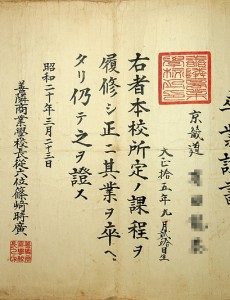 卒業證書
京畿道
大正拾五年九月日生
右者本校所定ノ課程ヲ
履修シ正ニ其業ヲ卒ヘ
タリ仍テ之ヲ證ス
昭和二十年三月二十三日
善隣商業學校長從六位篠崎時廣